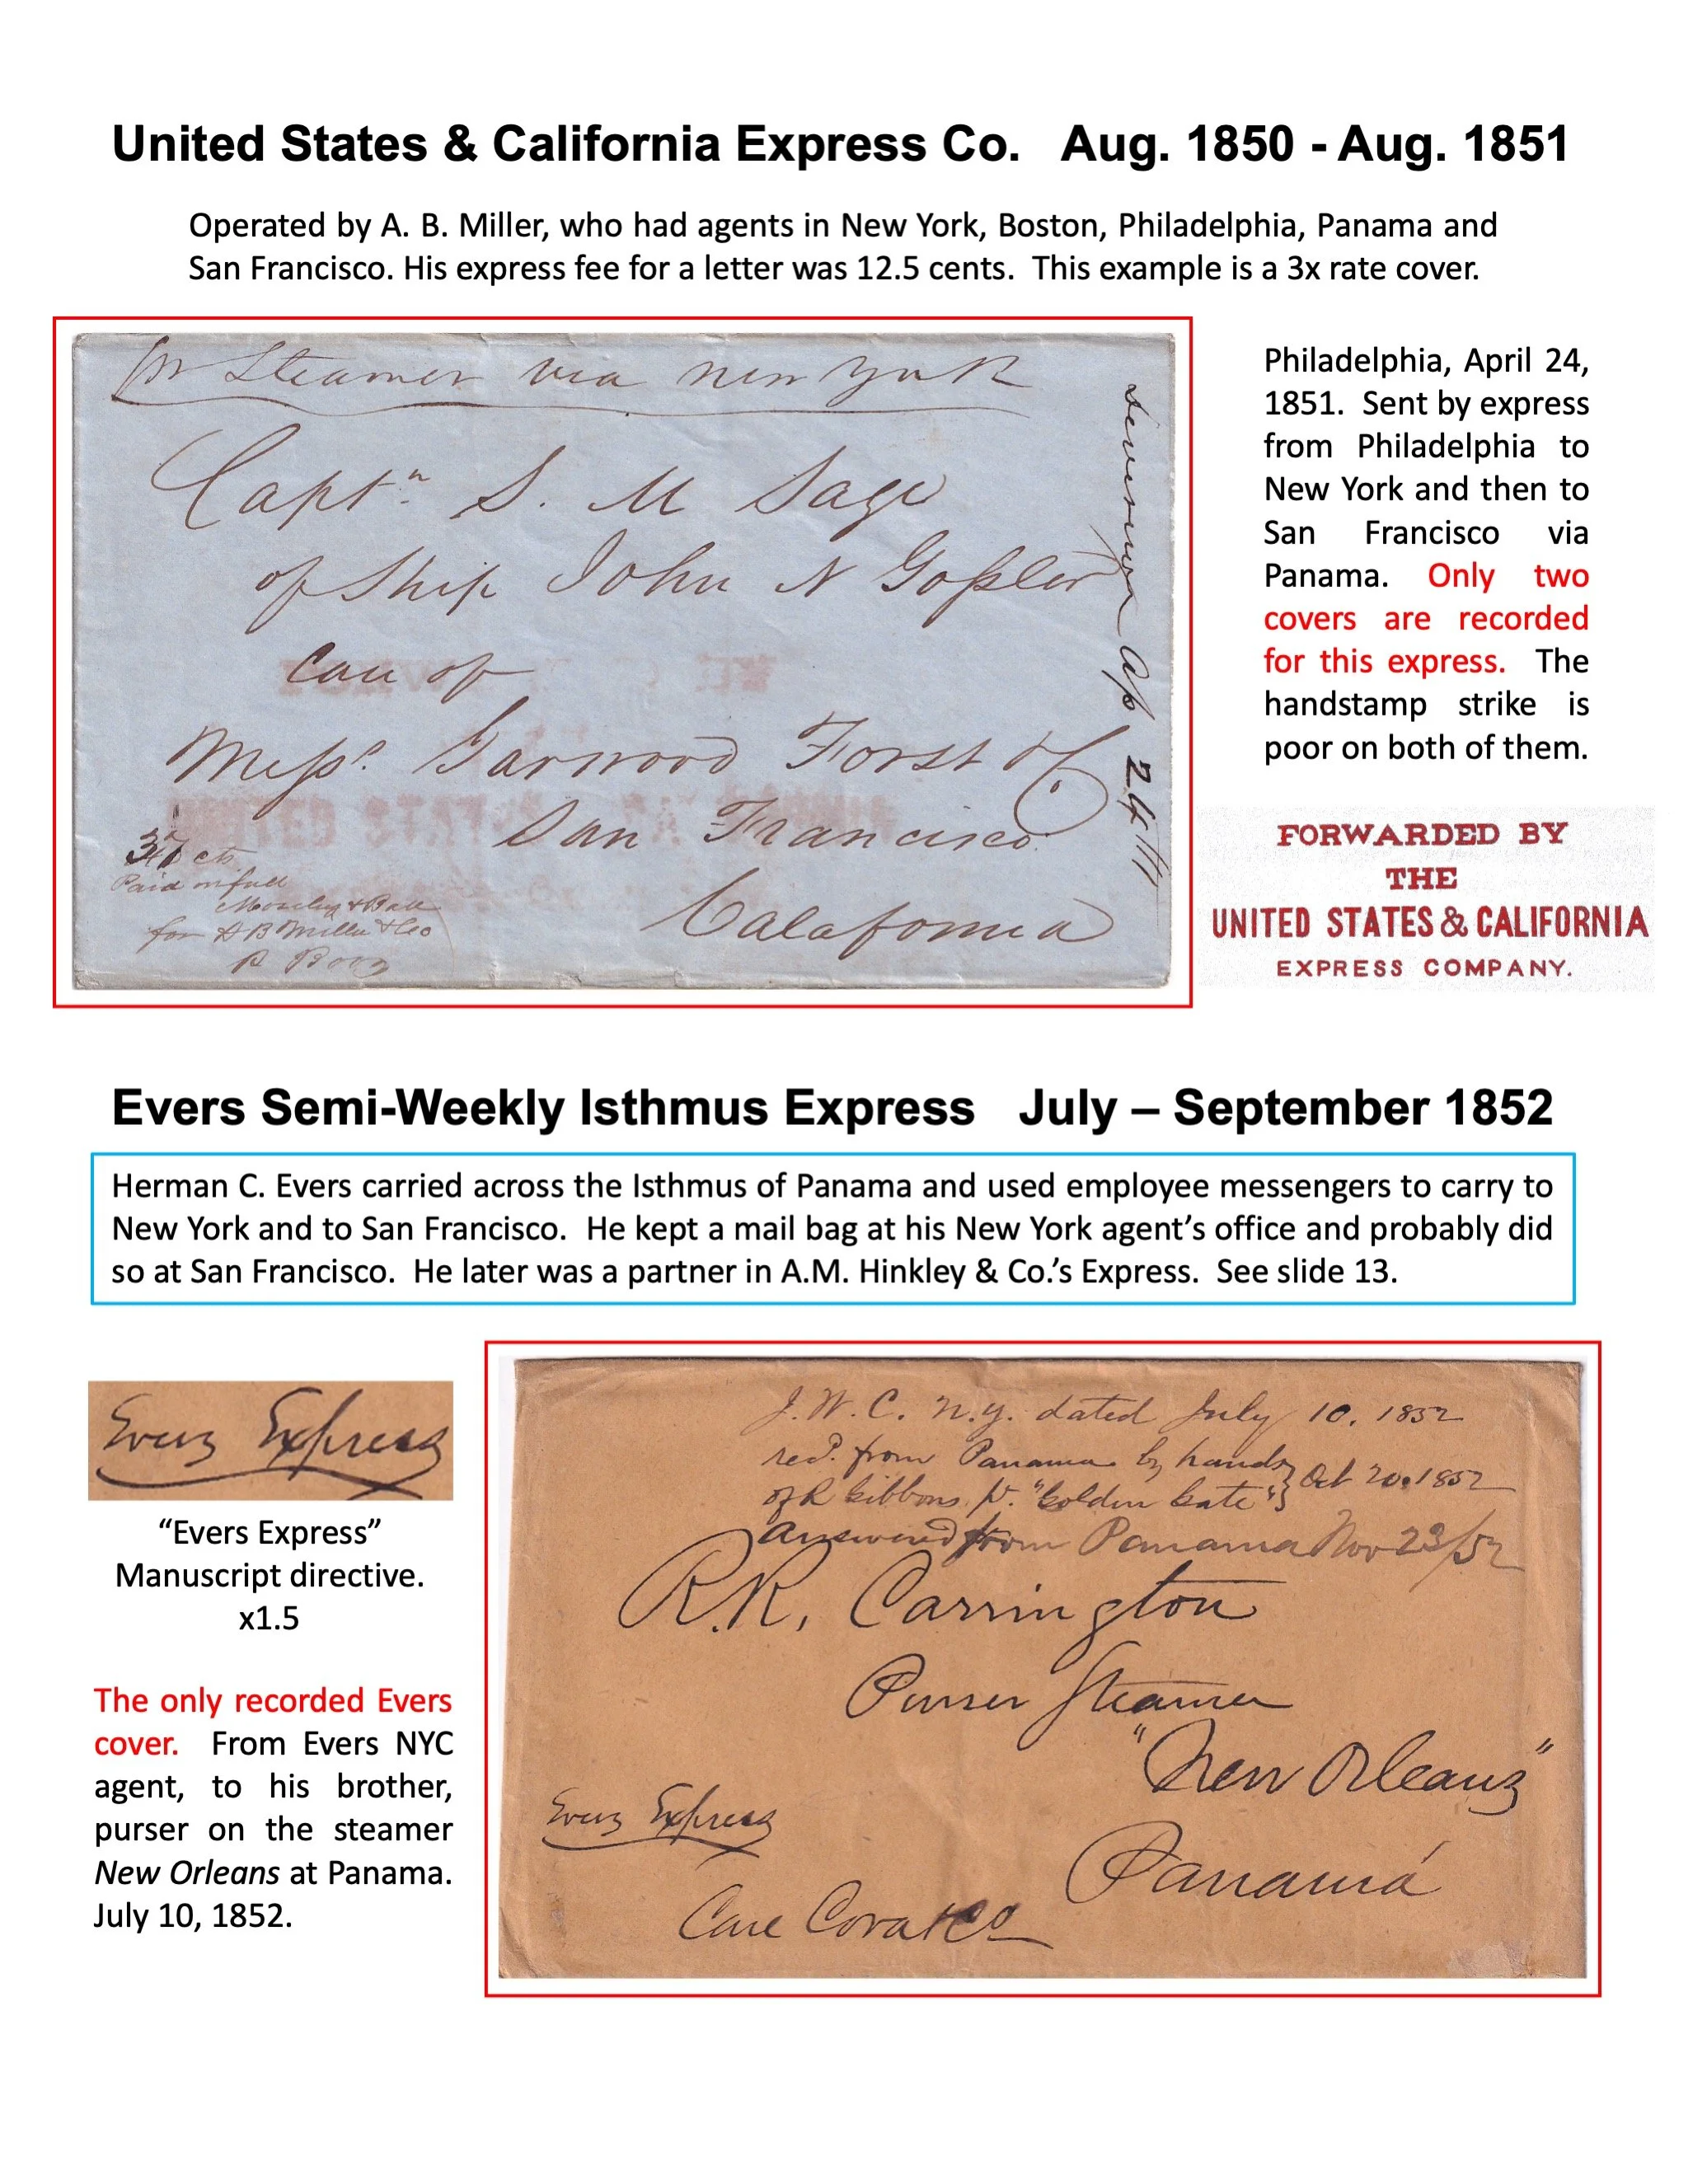 United States & California Express Co. Aug. 1850 - Aug. 1851
Operated by A. B. Miller, who had agents in New York, Boston, Philadelphia, Panama and
San Francisco. His express fee for a letter was 12.5 cents. This example is a 3x rate cover.
pr Steamer via New York
Captn. S. M Sage
of Ship John N Goßler
Care of
Messrs. Garwood Forst & Co.
San Francisco
Calafornia
Ap 24th
37 cts
Paid in full
for A B Miller & Co
Philadelphia, April 24,
1851. Sent by express
from Philadelphia to
New York and then to
San Francisco via
Panama. Only two
covers are recorded
for this express. The
handstamp strike is
poor on both of them.
FORWARDED BY
THE
UNITED STATES & CALIFORNIA
EXPRESS COMPANY.
Evers Semi-Weekly Isthmus Express July – September 1852
Herman C. Evers carried across the Isthmus of Panama and used employee messengers to carry to
New York and to San Francisco. He kept a mail bag at his New York agent's office and probably did
so at San Francisco. He later was a partner in A.M. Hinkley & Co.'s Express. See slide 13.
Evers Express
"Evers Express"
Manuscript directive.
x1.5
The only recorded Evers
cover. From Evers NYC
agent, to his brother,
purser on the steamer
New Orleans at Panama.
July 10, 1852.
J. W. C. N.Y. dated July 10. 1852
recd. from Panama by hands
of R Gibbons pr. "Golden Gate" } Oct 20. 1852
Answered from Panama Nov 23/52
R.R. Carrington
Purser Steamer
"New Orleans"
Panamá
Evers Express
Care Cova & Co